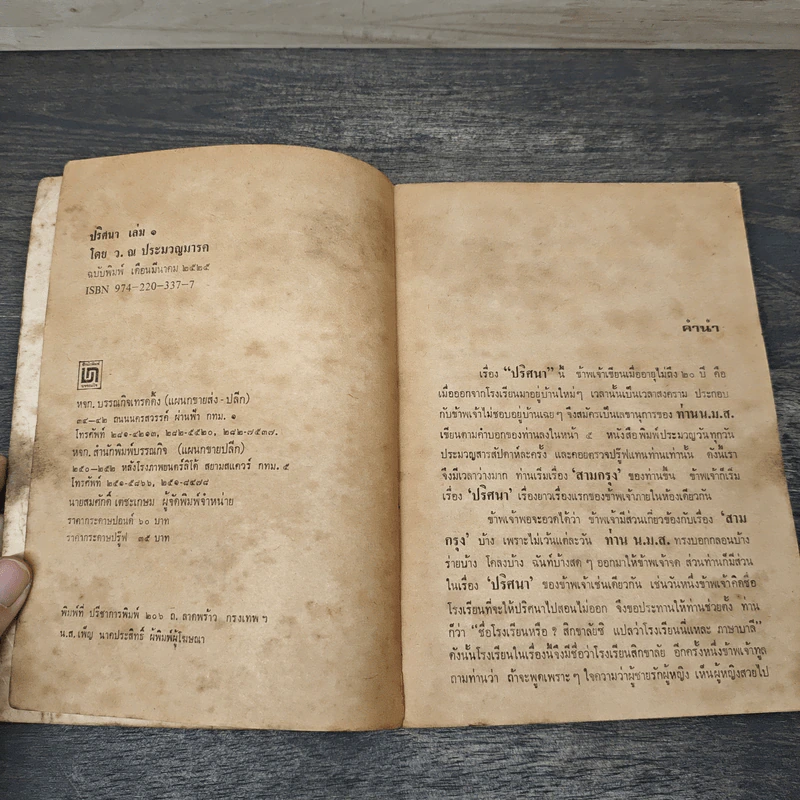 ปริศนา เล่ม ๑
โดย ว. ณ ประมวญมารค
ฉบับพิมพ์ เดือนมีนาคม ๒๕๒๕
ISBN 974-220-337-7
หจก. บรรณกิจเทรดดิ้ง (แผนกขายส่ง - ปลีก)
๓๔-๔๒ ถนนนครสวรรค์ ผ่านฟ้า กทม. ๑
โทรศัพท์ ๒๘๑-๔๒๑๓, ๒๘๒-๕๕๒๐, ๒๘๒-๗๕๓๗.
หจก. สำนักพิมพ์บรรณกิจ (แผนกขายปลีก)
๒๕๐-๒๕๒ หลังโรงภาพยนตร์ลิโด้ สยามสแควร์ กทม. ๕
โทรศัพท์ ๒๕๑-๕๘๖๖, ๒๕๑-๘๔๗๘
นายสมศักดิ์ เตชะเกษม ผู้จัดพิมพ์จำหน่าย
ราคากระดาษปอนด์ ๖๐ บาท
ราคากระดาษปรู๊ฟ ๓๕ บาท
พิมพ์ที่ ปรีชาการพิมพ์ ๒๐๖ ถ. ลาดพร้าว กรุงเทพ ฯ
น.ส. เพ็ญ นาคประสิทธิ์ ผู้พิมพ์ผู้โฆษณา
คำนำ
เรื่อง “ปริศนา” นี้ ข้าพเจ้าเขียนเมื่ออายุไม่ถึง ๒๐ ปี คือ
เมื่อออกจากโรงเรียนมาอยู่บ้านใหม่ๆ เวลานั้นเป็นเวลาสงคราม ประกอบ
กับข้าพเจ้าไม่ชอบอยู่บ้านเฉย ๆ จึงสมัครเป็นเลขานุการของ ท่าน น.ม.ส.
เขียนตามคำบอกของท่านลงในหน้า ๕ หนังสือพิมพ์ประมวญวันทุกวัน
ประมวญสารสัปดาหะละครั้ง และคอยตรวจปรู๊ฟแทนท่านเท่านั้น ดังนี้เรา
จึงมีเวลาว่างมาก ท่านเริ่มเรื่อง ‘สามกรุง’ ของท่านขึ้น ข้าพเจ้าก็เริ่ม
เรื่อง ‘ปริศนา’ เรื่องยาวเรื่องแรกของข้าพเจ้าภายในห้องเดียวกัน
ข้าพเจ้าพอจะอวดได้ว่า ข้าพเจ้ามีส่วนเกี่ยวข้องกับเรื่อง ‘สาม
กรุง’ บ้าง เพราะไม่เว้นแต่ละวัน ท่าน น.ม.ส. ทรงบอกกลอนบ้าง
ร่ายบ้าง โคลงบ้าง ฉันท์บ้างสด ๆ ออกมาให้ข้าพเจ้าจด ส่วนท่านก็มีส่วน
ในเรื่อง ‘ปริศนา’ ของข้าพเจ้าเช่นเดียวกัน เช่นวันหนึ่งข้าพเจ้าคิดชื่อ
โรงเรียนที่จะให้ปริศนาไปสอนไม่ออก จึงขอประทานให้ท่านช่วยตั้ง ท่าน
ก็ว่า “ชื่อโรงเรียนหรือ ? สิกขาลัยซิ แปลว่าโรงเรียนนี่แหละ ภาษาบาลี”
ดังนั้นโรงเรียนในเรื่องนี้จึงมีชื่อว่าโรงเรียนสิกขาลัย อีกครั้งหนึ่งข้าพเจ้าทูล
ถามท่านว่า ถ้าจะพูดเพราะ ๆ ใจความว่าผู้ชายรักผู้หญิง เห็นผู้หญิงสวยไป